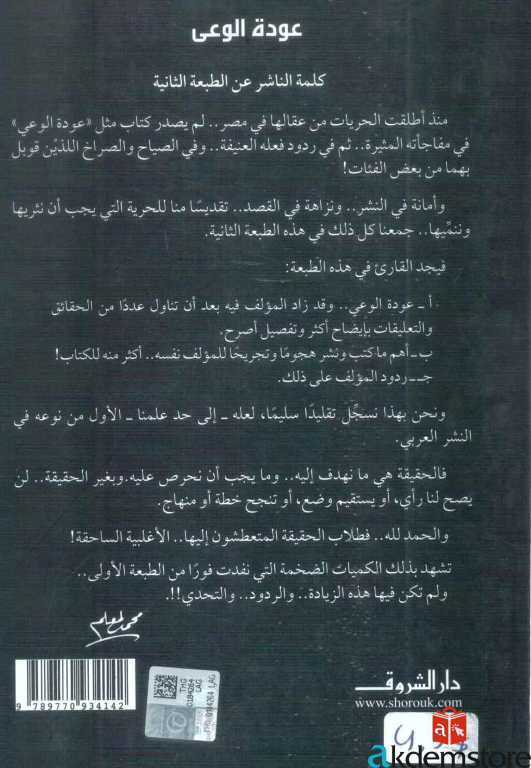 عودة الوعى
كلمة الناشر عن الطبعة الثانية
منذ أطلقت الحريات من عقالها في مصر.. لم يصدر كتاب مثل «عودة الوعي»
في مفاجأته المثيرة.. ثم في ردود فعله العنيفة.. وفي الصياح والصراخ اللذين قوبل
بهما من بعض الفئات!
وأمانة في النشر.. ونزاهة في القصد.. تقديسًا منا للحرية التي يجب أن نثريها
وننمِّيها.. جمعنا كل ذلك في هذه الطبعة الثانية.
فيجد القارئ في هذه الطبعة:
أ ـ عودة الوعي.. وقد زاد المؤلف فيه بعد أن تناول عددًا من الحقائق
والتعليقات بإيضاح أكثر وتفصيل أصرح.
ب ـ أهم ما كتب ونشر هجومًا وتجريحًا للمؤلف نفسه.. أكثر منه للكتاب!
جـ ـ ردود المؤلف على ذلك.
ونحن بهذا نسجِّل تقليدًا سليمًا، لعله ـ إلى حد علمنا ـ الأول من نوعه في
النشر العربي.
فالحقيقة هي ما نهدف إليه.. وما يجب أن نحرص عليه. وبغير الحقيقة.. لن
يصح لنا رأي، أو يستقيم وضع، أو تنجح خطة أو منهاج.
والحمد لله.. فطلاب الحقيقة المتعطشون إليها.. الأغلبية الساحقة!
تشهد بذلك الكميات الضخمة التي نفدت فورًا من الطبعة الأولى..
ولم تكن فيها هذه الزيادة.. والردود.. والتحدي!!.
محمد المعلم
دار الشروق
www.shorouk.com
9 789770 934142
THG
0184264
LAG
akdemstore